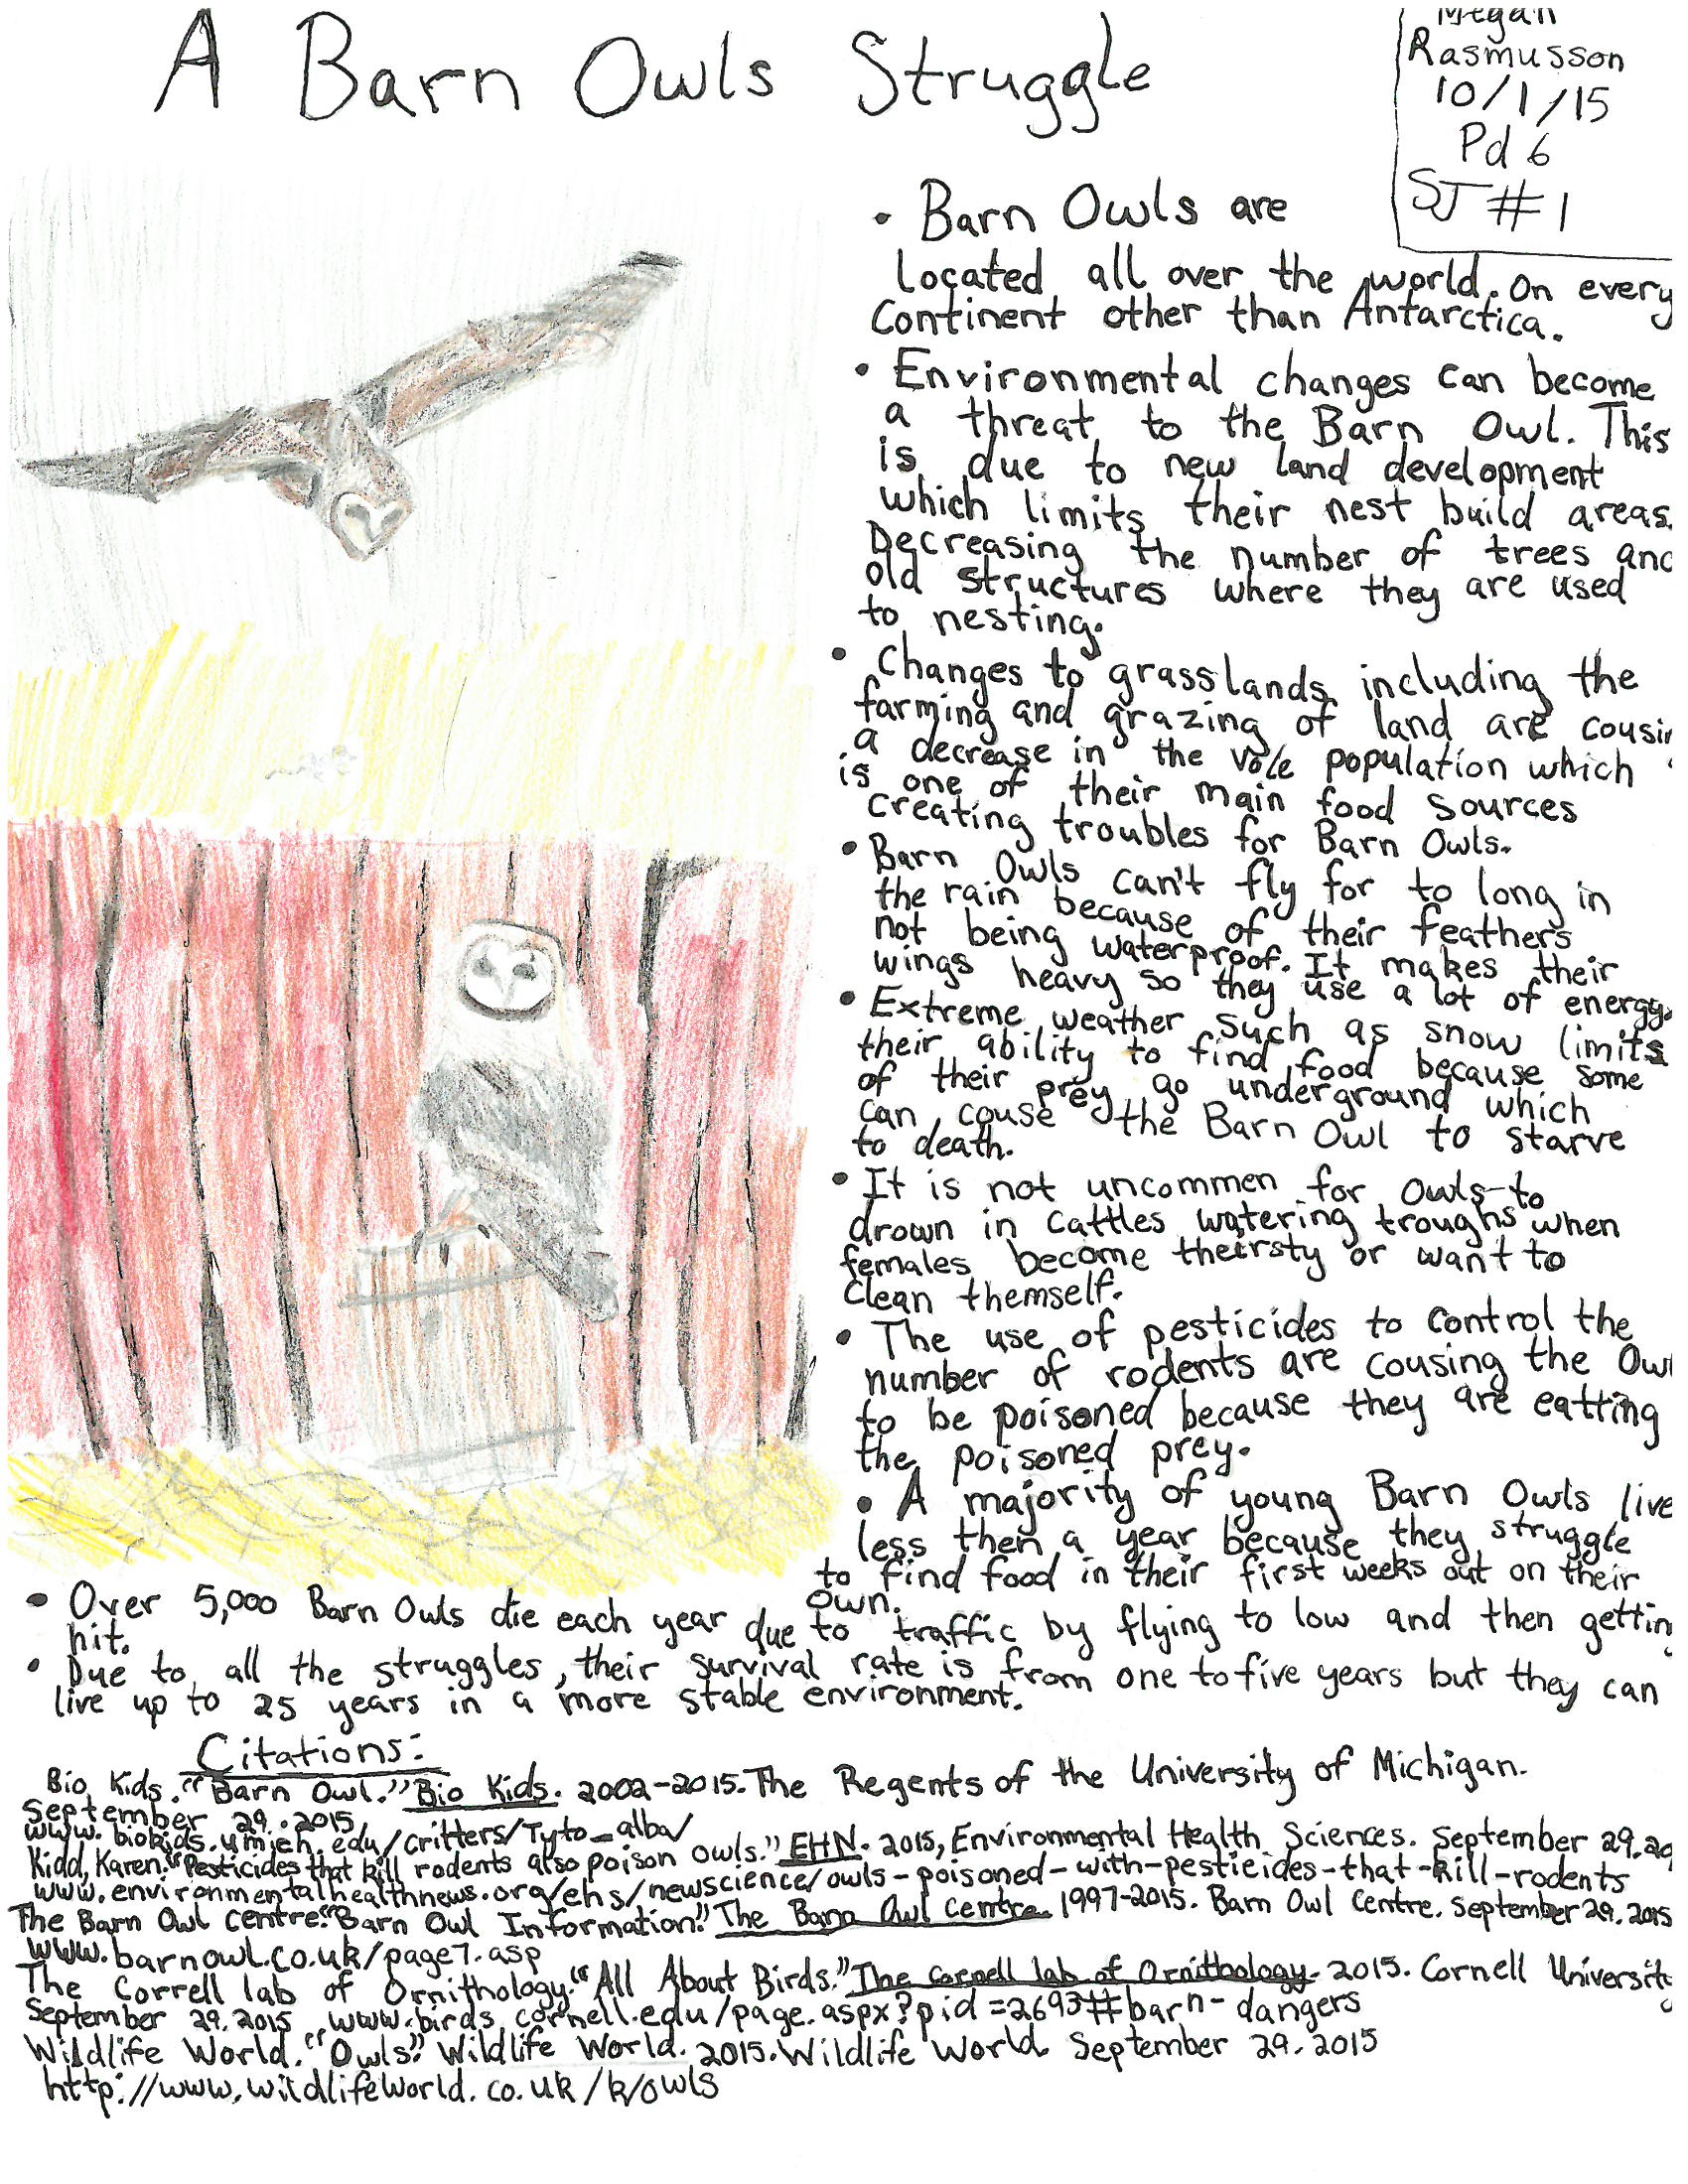 A Barn Owls Struggle
Megan
Rasmusson
10/1/15
Pd 6
SJ #1
• Barn Owls are
Located all over the world. On every
Continent other than Antarctica.
• Environmental changes can become
a threat to the Barn Owl. This
is due to new land development
which limits their nest build areas.
Decreasing the number of trees and
old structures where they are used
to nesting.
• Changes to grasslands including the
farming and grazing of land are cousin
a decrease in the vole population which
is one of their main food sources
creating troubles for Barn Owls.
• Barn Owls can't fly for to long in
the rain because of their feathers
not being waterproof. It makes their
wings heavy so they use a lot of energy.
• Extreme weather such as snow limits
their ability to find food because some
of their prey go underground which
can couse the Barn Owl to starve
to death.
• It is not uncommen for owls to
drown in cattles watering troughs when
females become theirsty or want to
clean themself.
• The use of pesticides to control the
number of rodents are cousing the Owl
to be poisoned because they are eatting
the poisoned prey.
• A majority of young Barn Owls live
less then a year because they struggle
to find food in their first weeks out on their
own.
• Over 5,000 Barn Owls die each year due to traffic by flying to low and then getting
hit.
• Due to all the struggles, their survival rate is from one to five years but they can
live up to 25 years in a more stable environment.
Citations:
Bio Kids. "Barn Owl." Bio Kids. 2002-2015. The Regents of the University of Michigan.
September 29. 2015
www.biokids.umich.edu/critters/Tyto_alba/
Kidd, Karen. "Pesticides that kill rodents also poison owls." EHN. 2015, Environmental Health Sciences. September 29. 20
www.environmentalhealthnews.org/ehs/newscience/owls-poisoned-with-pesticides-that-kill-rodents
The Barn Owl Centre. "Barn Owl Information." The Barn Owl Centre. 1997-2015. Barn Owl Centre. September 29. 2015
www.barnowl.co.uk/page7.asp
The Correll lab of Ornithology. "All About Birds." The Cornell lab of Ornithology. 2015. Cornell University
September 29. 2015 www.birds.cornell.edu/page.aspx?pid=2693#barn-dangers
Wildlife World. "Owls". Wildlife World. 2015. Wildlife World. September 29. 2015
http://www.wildlifeworld.co.uk/k/owls